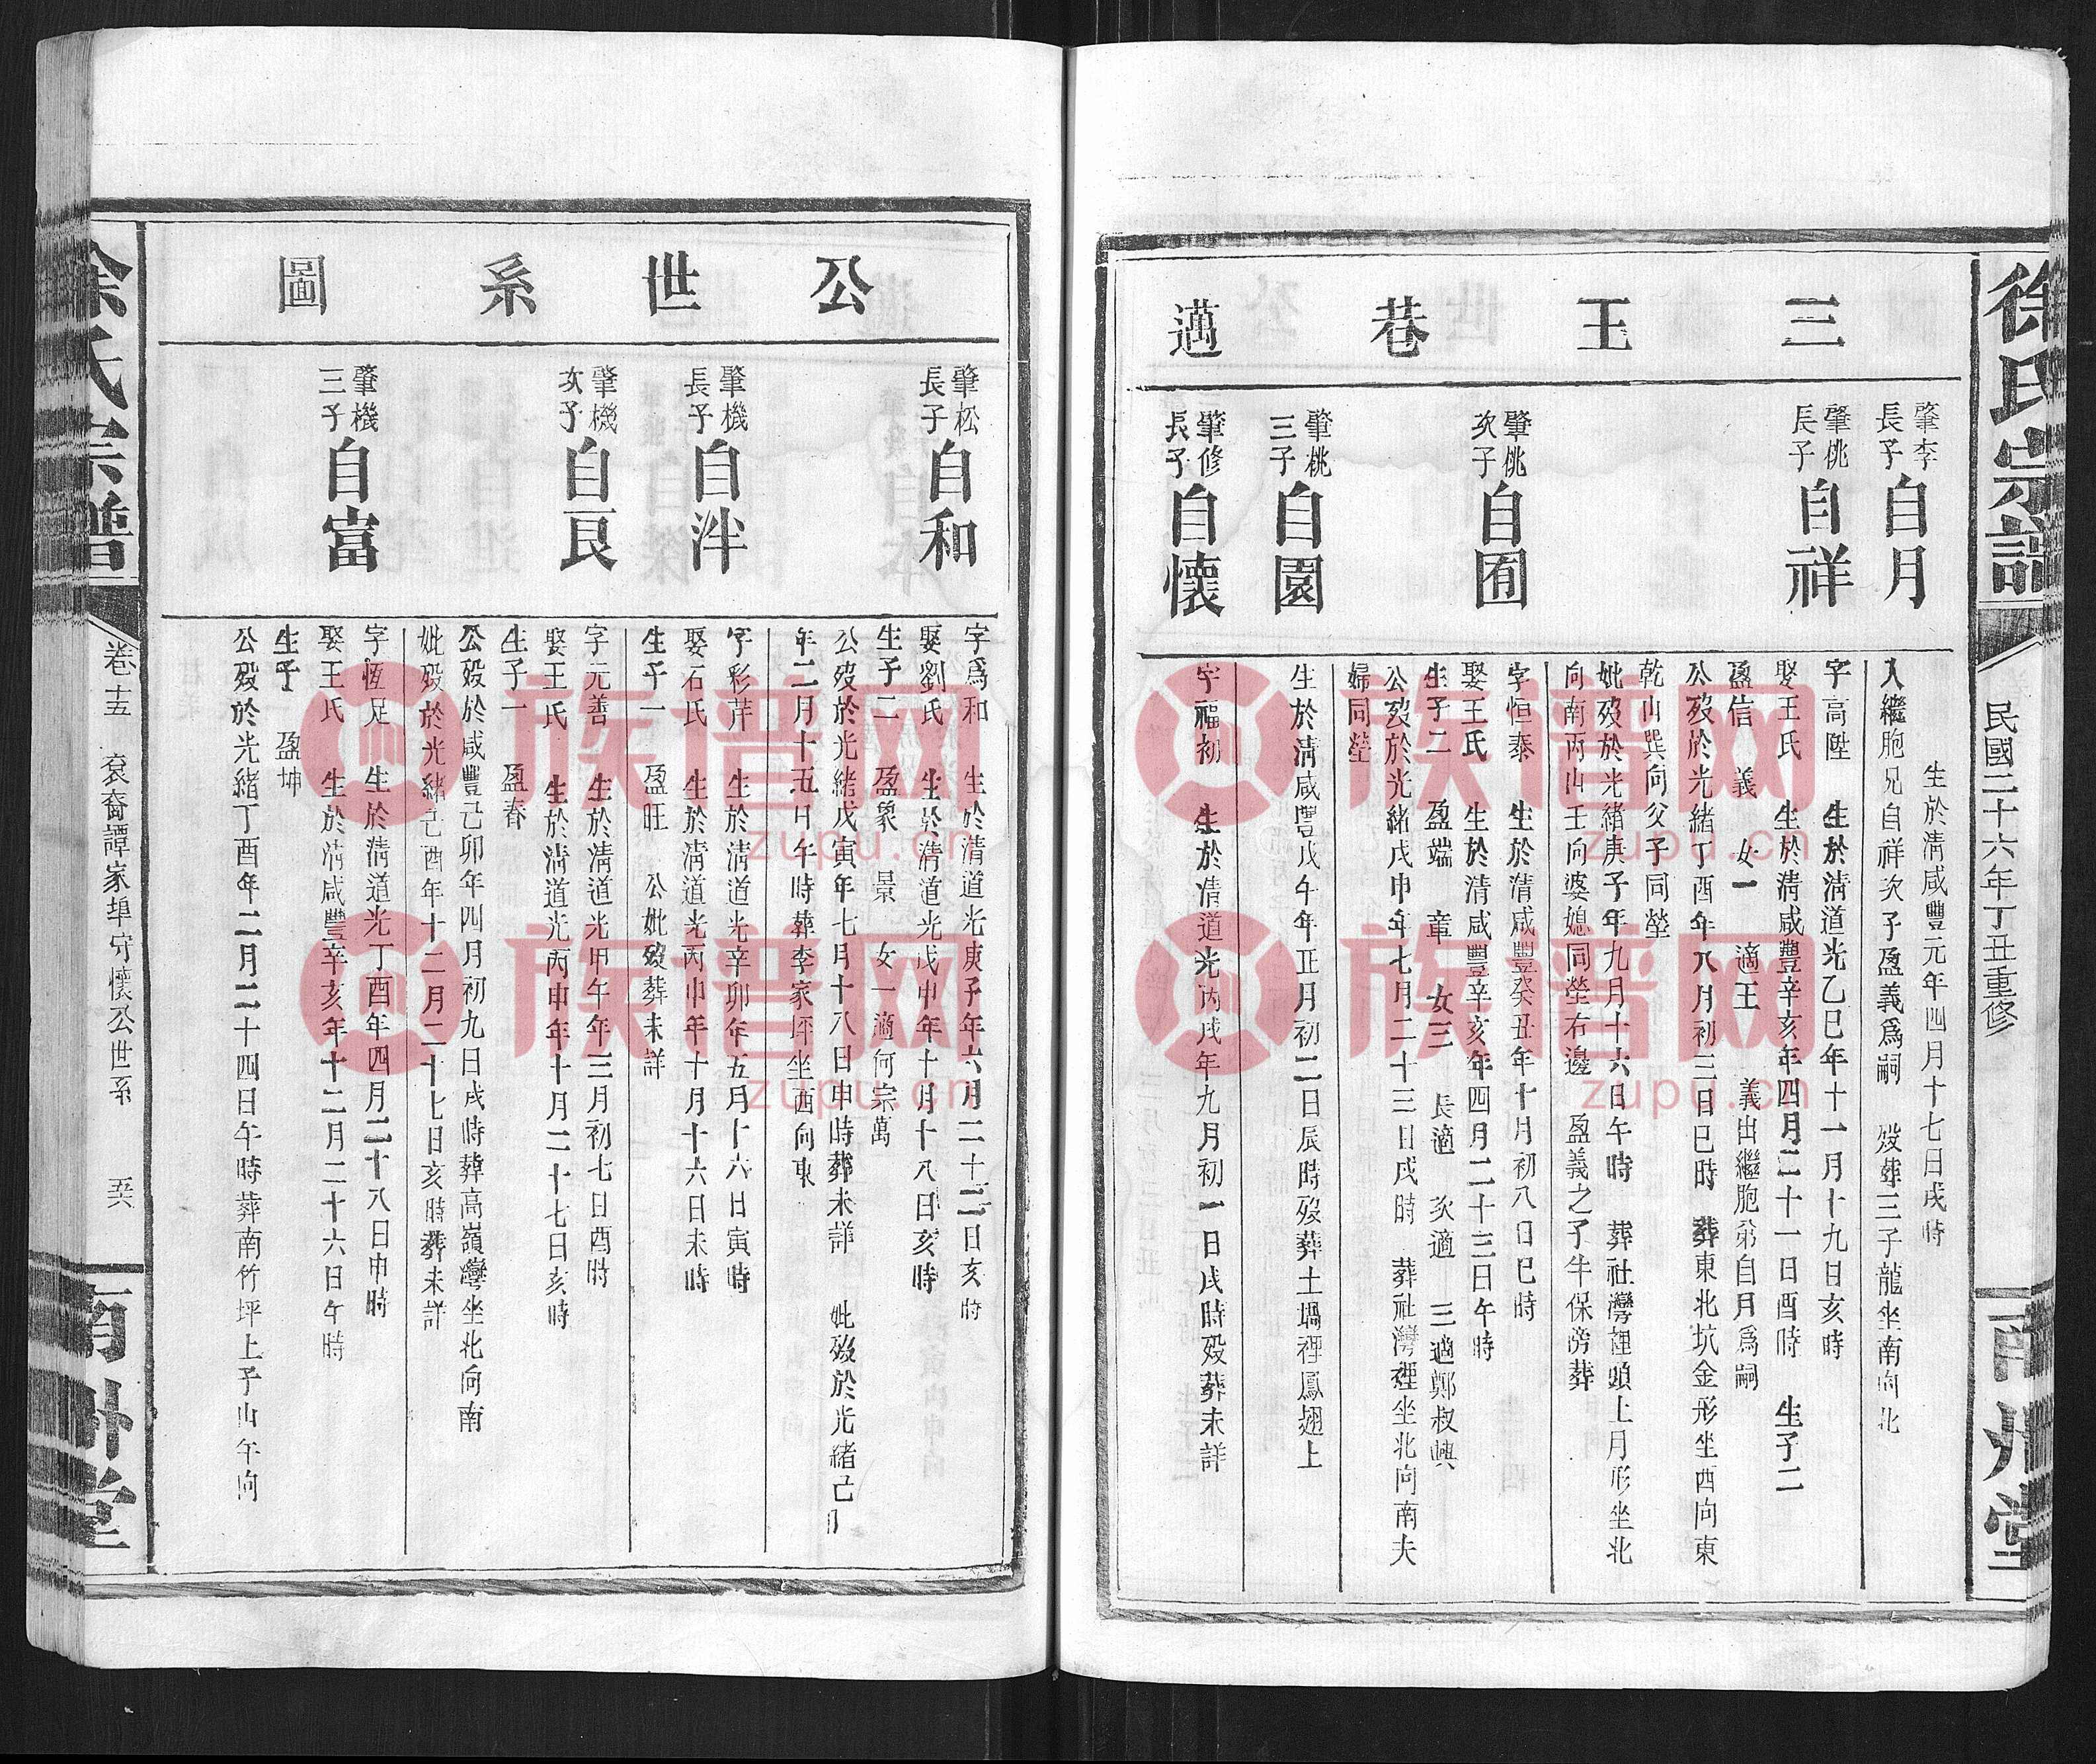 徐氏宗譜
民國二十六年丁丑重修
南州堂
三王巷邁
肇李
長子
自月
生於淸咸豐元年四月十七日戌時
入繼胞兄自祥次子盈義爲嗣 歿葬三子龍坐南向北
肇桃
長子
自祥
字高陞 生於淸道光乙巳年十一月十九日亥時
娶王氏 生於淸咸豐辛亥年四月二十一日酉時 生子二
盈信 義 女一 適王 義出繼胞弟自月爲嗣
公歿於光緒丁酉年八月初三日巳時 葬東北坑金形坐西向東
乾山巽向父子同塋
妣歿於光緒庚子年九月十六日午時 葬社灣裡頭上月形坐北
向南丙山壬向婆媳同塋右邊 盈義之子牛保傍葬
肇桃
次子
自囿
字恒泰 生於淸咸豐癸丑年十月初八日巳時
娶王氏 生於淸咸豐辛亥年四月二十三日午時
生子二 盈端 章 女三 長適 次適 三適鄭叔興
公歿於光緒戊申年七月二十三日戌時 葬社灣裡坐北向南夫
婦同塋
肇桃
三子
自園
生於淸咸豐戊午年正月初二日辰時歿葬土塥裡鳳翅上
肇修
長子
自懷
字福初 生於淸道光丙戌年九月初一日戌時歿葬未詳
公世系圖
肇松
長子
自和
字爲和 生於淸道光庚子年六月二十二日亥時
娶劉氏 生於淸道光戊申年十月十八日亥時
生子二 盈象 景 女一適何宗萬
公歿於光緒戊寅年七月十八日申時葬未詳 妣歿於光緒己卯
年二月十五日午時葬李家坪坐西向東
肇機
長子
自泮
字彩芹 生於淸道光辛卯年五月十六日寅時
娶石氏 生於淸道光丙申年十月十六日未時
生子一 盈旺 公妣歿葬未詳
肇機
次子
自良
字元善 生於淸道光甲午年三月初七日酉時
娶王氏 生於淸道光丙申年十月二十七日亥時
生子一 盈春
公歿於咸豐己卯年四月初九日戌時葬高嶺灣坐北向南
妣歿於光緒己酉年十二月二十七日亥時葬未詳
肇機
三子
自富
字恆足 生於淸道光丁酉年四月二十八日申時
娶王氏 生於淸咸豐辛亥年十二月二十六日午時
生子 盈坤
公歿於光緒丁酉年二月二十四日午時葬南竹坪上子山午向
徐氏宗譜
卷十五 袞裔譚家埠守懷公世系 五六
南州堂
族譜网
zupu.cn
族譜网
zupu.cn
族譜网
zupu.cn
族譜网
zupu.cn